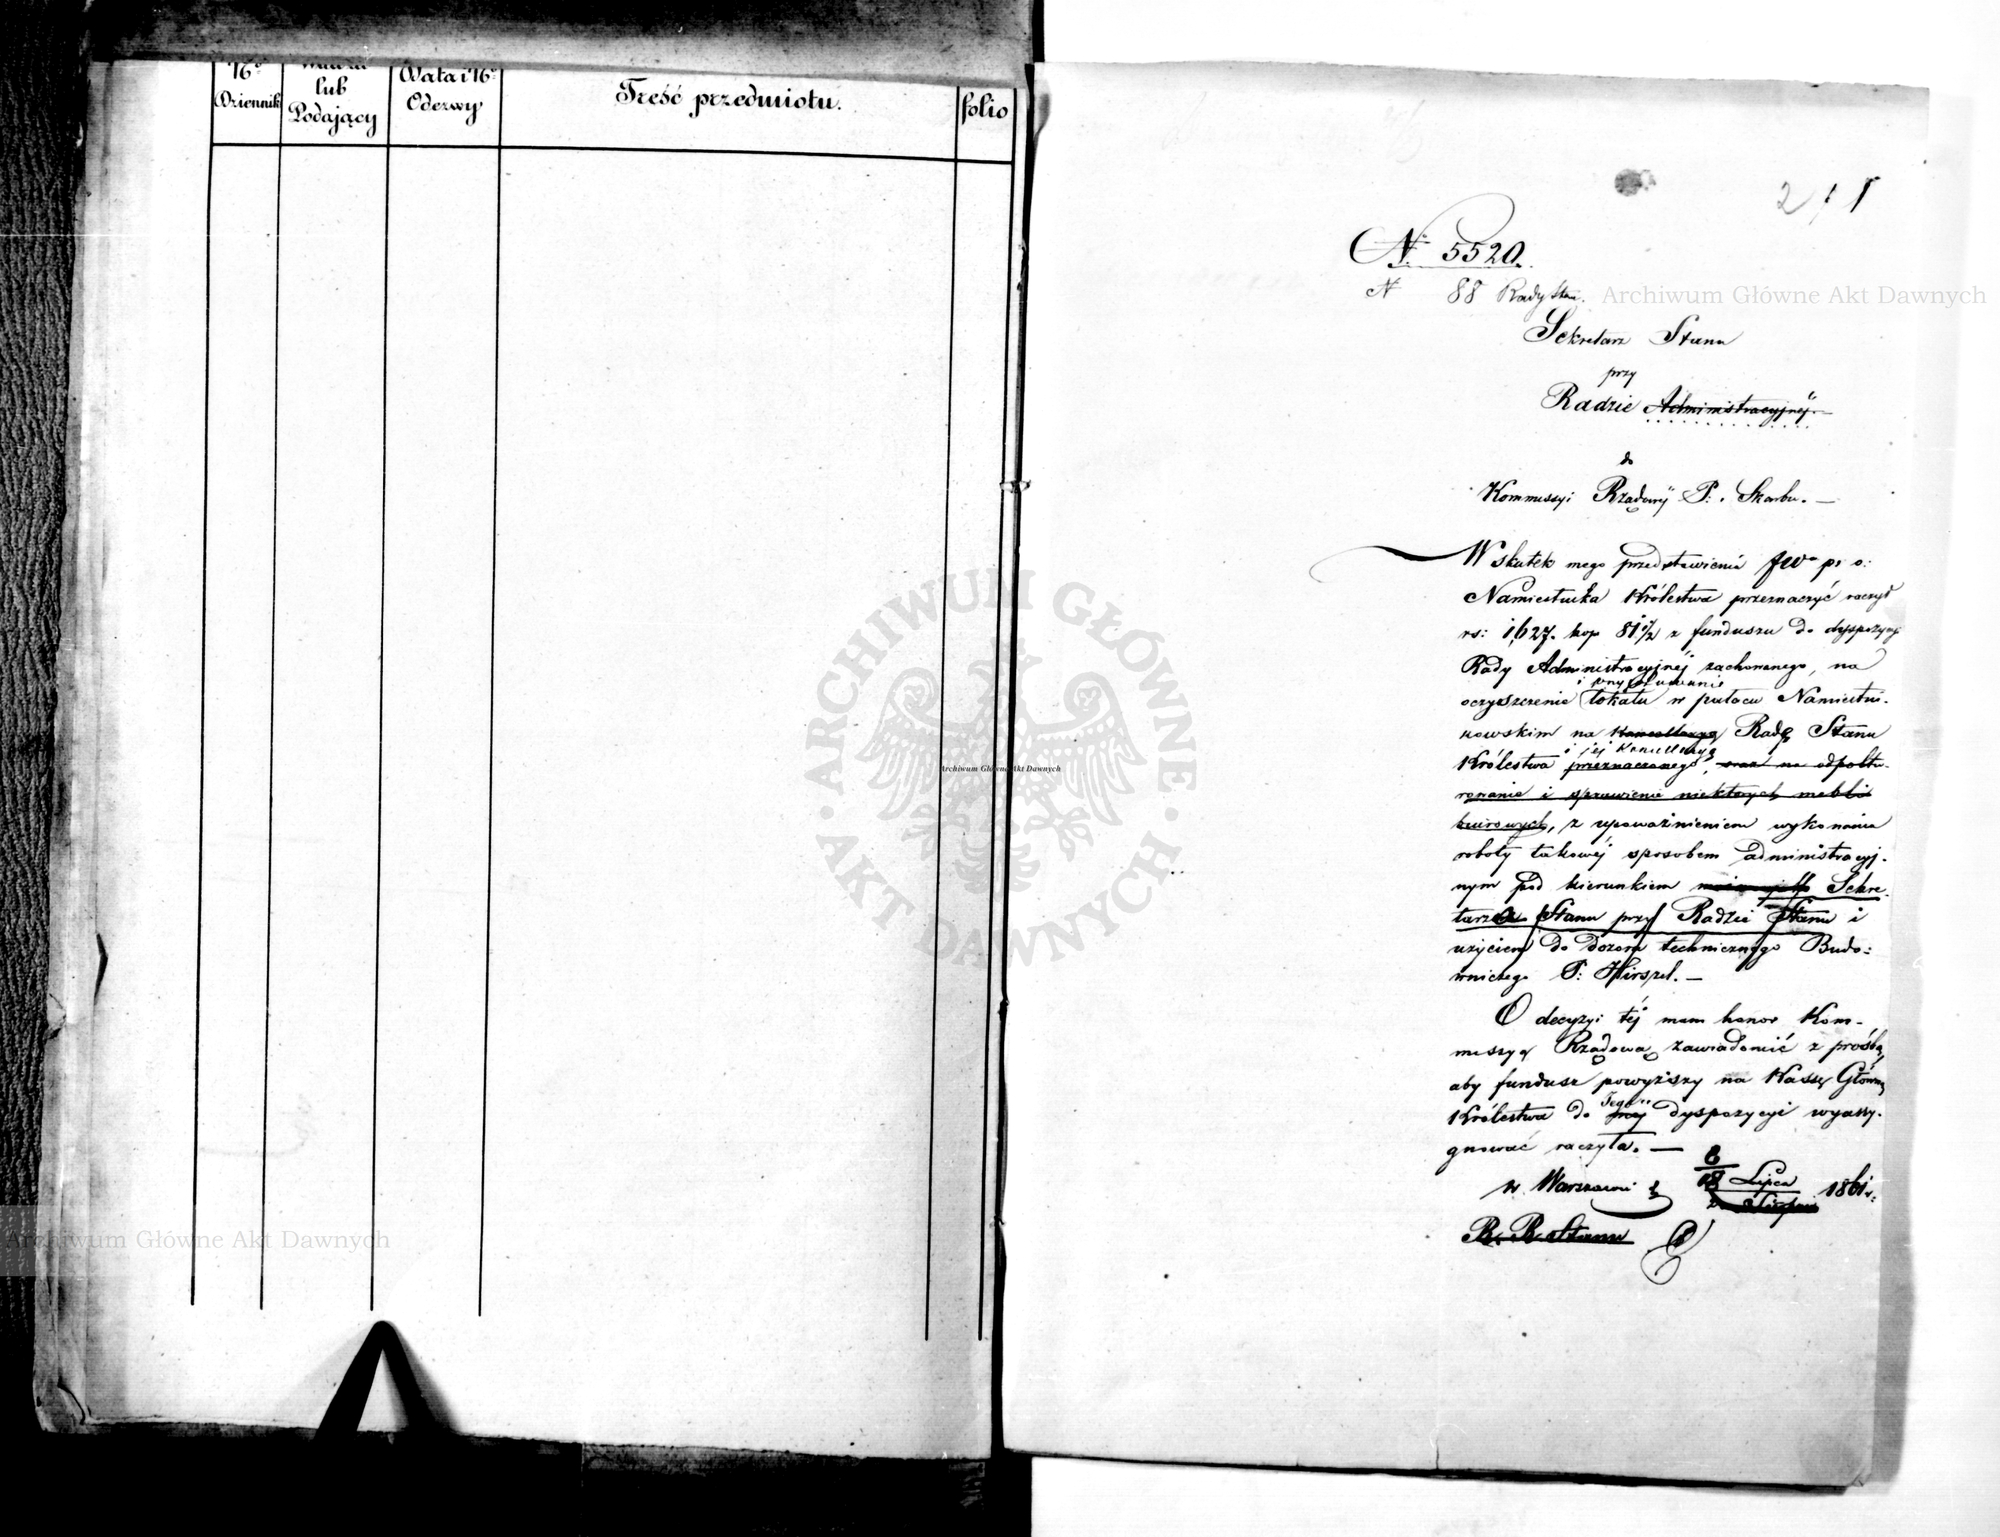 No
Dziennik
Władza
lub
Podający
Data i No
Odezwy
Treść przedmiotu.
folio
2 / 1
No 5520.
N 88 Rady Stan.
Sekretarz Stanu
przy
Radzie Administracyjnej
do
Kommissyi Rządowéj P. i Skarbu. —
W skutek mego przedstawienia JW. p. o.
Namiestnika Królestwa przeznaczyć raczył
rs: 1,627. kop 81 1/2 z funduszu do dyspozycyi
Rady Administracyjnéj zachowanego, na
oczyszczenie i przysposobienie lokalu w pałacu Namiestni-
kowskim na Kancellaryą Radę Stanu
i jej Kancellaryą
Królestwa przeznaczonego, oraz na odpoltu-
rowanie i sprawienie niektórych mebli
biurowych, z upoważnieniem wykonania
roboty takowéj sposobem administracyj-
nym pod kierunkiem Sekre-
tarza Stanu przy Radzie Stanu i
użyciem do dozoru technicznego Budo-
wniczego P: Hirszel. —
O decyzyi téj mam honor Kom-
missyą Rządową zawiadomić z prośbą,
aby fundusz powyższy na Kassę Główną
Królestwa do mej Tegoż dyspozycyi wyassy-
gnować raczyła. —
w Warszawie d 6/18 Lipca 1861 r.
Sierpnia
R. R. Stanu
Archiwum Główne Akt Dawnych
ARCHIWUM GŁÓWNE AKT DAWNYCH
Archiwum Główne Akt Dawnych
Archiwum Główne Akt Dawnych